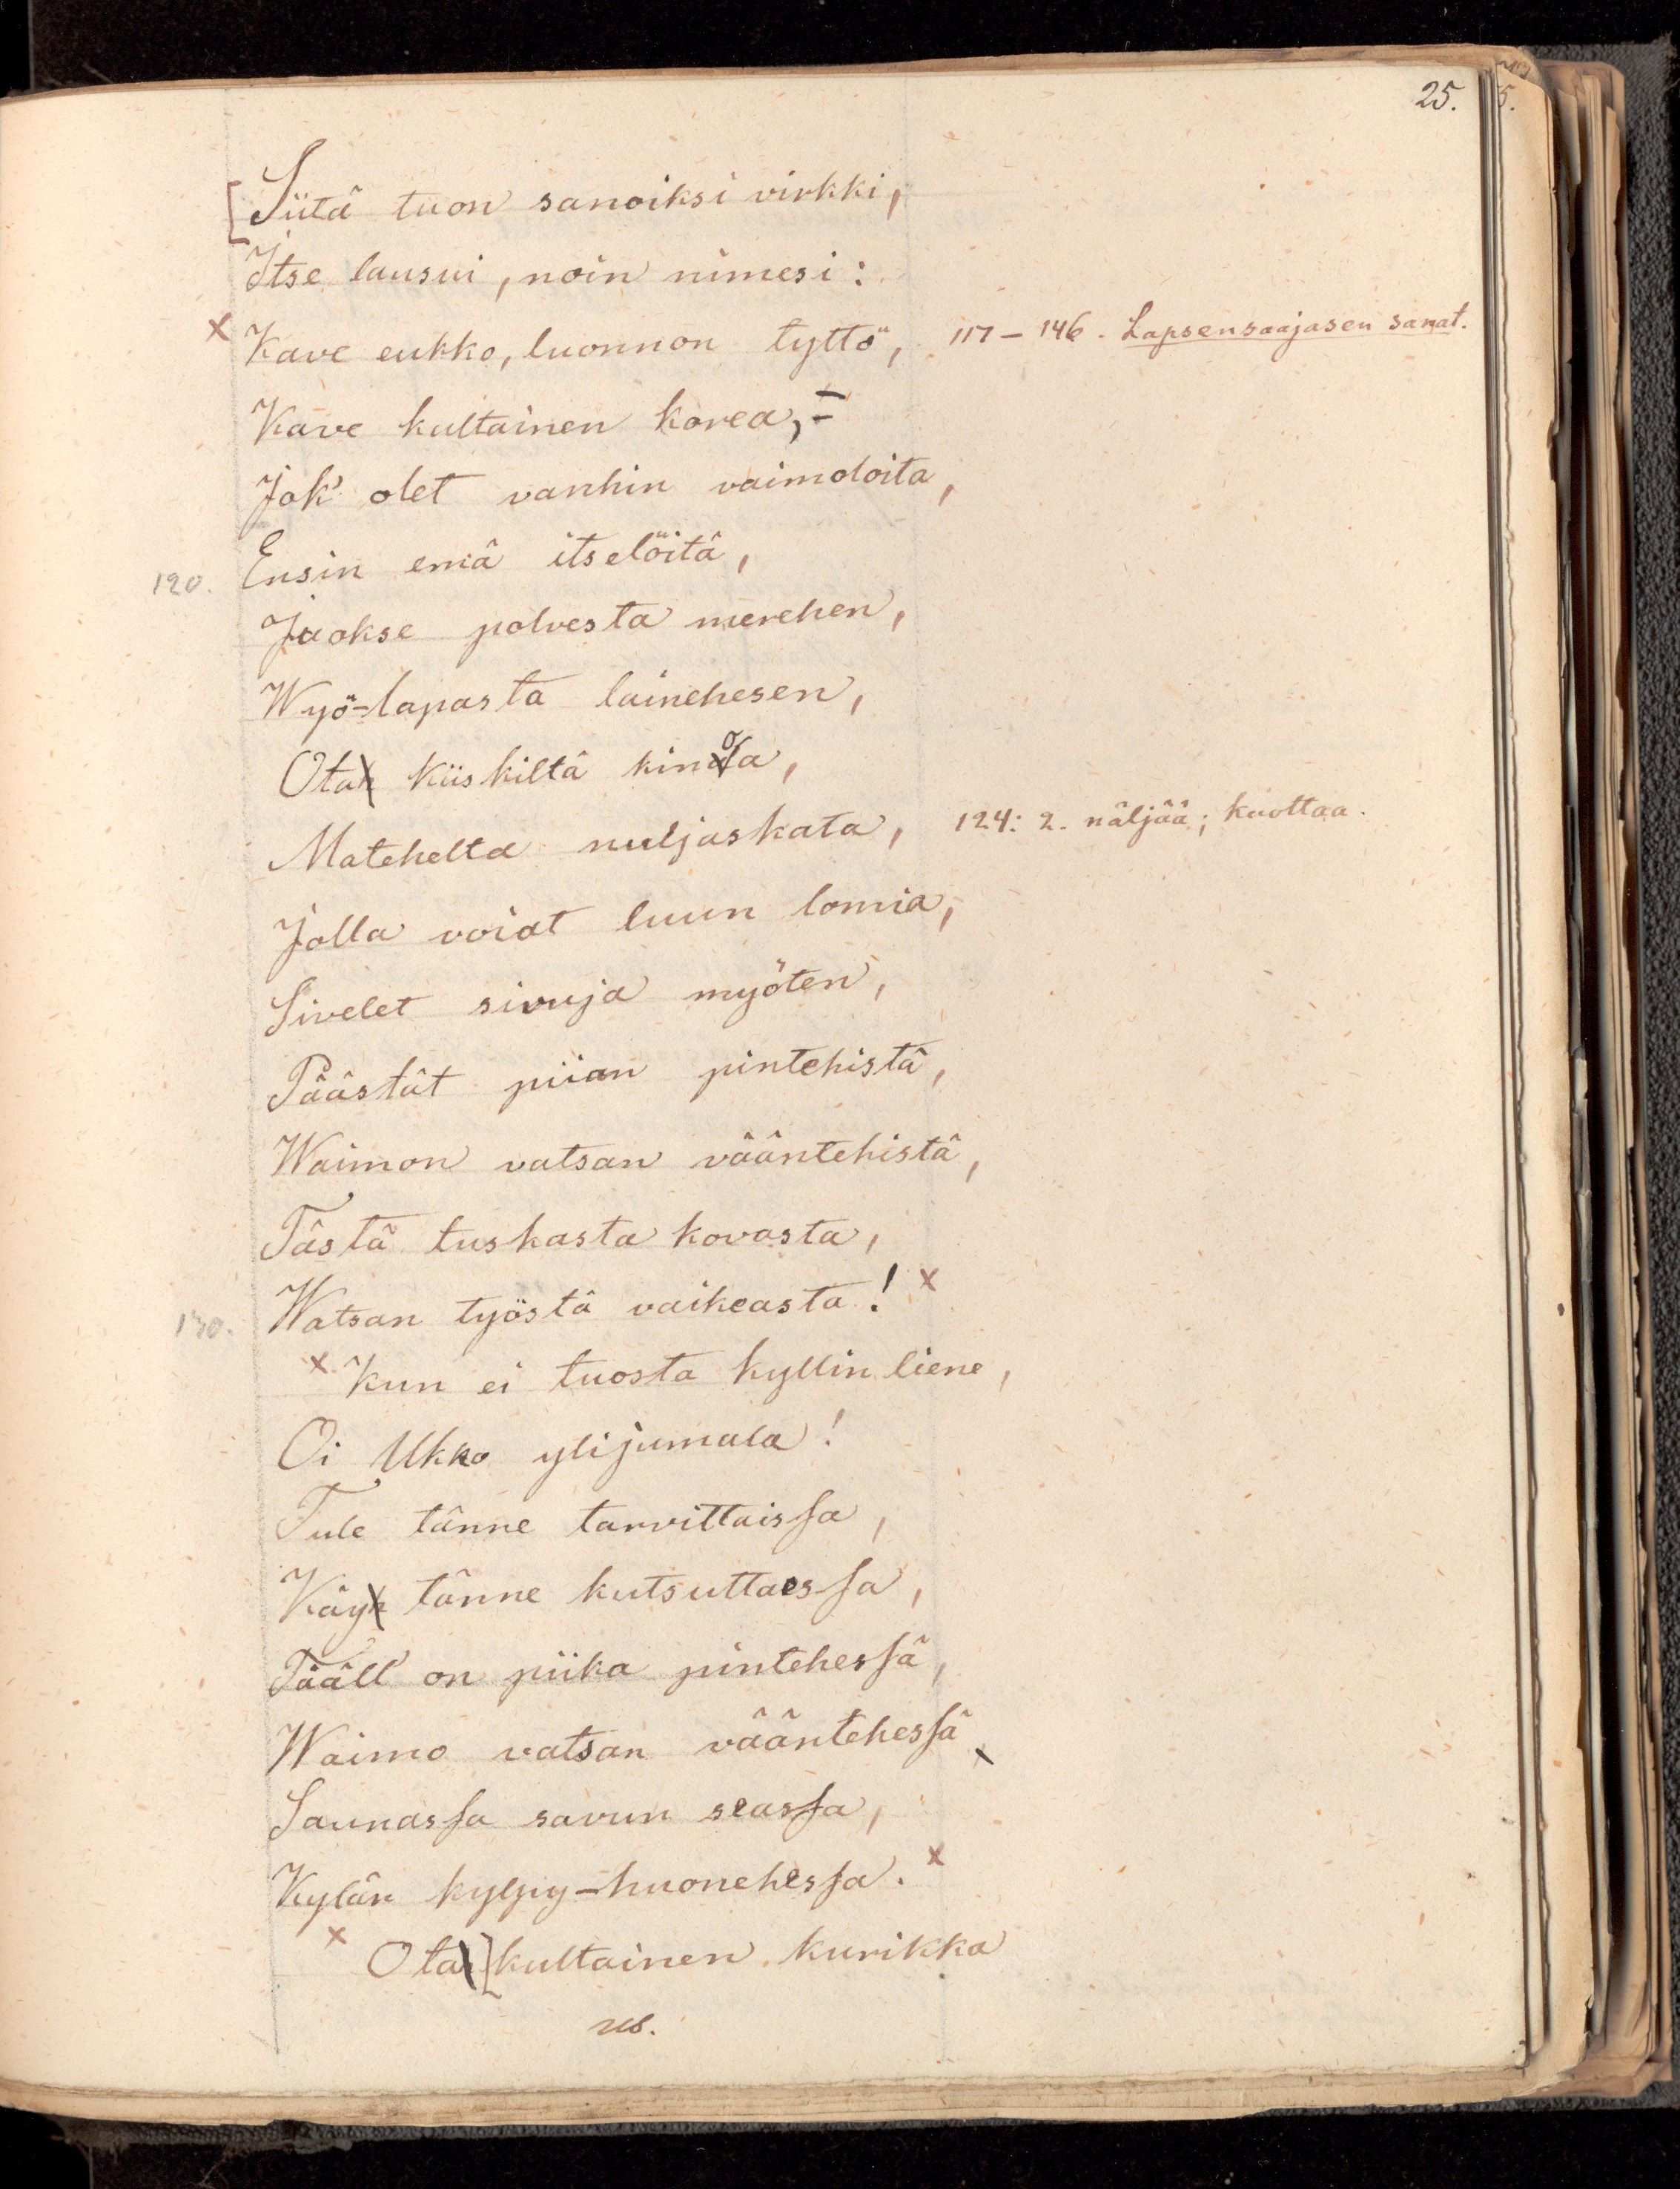 25.
Siitä tuon sanoiksi virkki,
Itse lausui, noin nimesi:
x Kave eukko, luonnon tyttö, 117–146. Lapsensaajasen sanat.
Kave kultainen korea, –
Jok' olet vanhin vaimoloita,
120. Ensin emä itselöitä,
Juokse polvesta merehen,
Wyö-lapasta lainehesen,
Ota kiiskiltä kinoa,
Matehelta nuljaskata, 124: 2. näljää; kuottaa.
Jolla voiat luun lomia,
Sivelet sivuja myöten,
Päästät piian pintehistä,
Waimon vatsan vääntehistä,
Tästä tuskasta kovasta,
130. Watsan työstä vaikeasta! x
x Kun ei tuosta kyllin liene,
Oi Ukko ylijumala!
Tule tänne tarvittaissa,
Käy tänne kutsuttaessa,
Tääll' on piika pintehessä,
Waimo vatsan vääntehessä
Saunassa savun seassa,
Kylän kylpy-huonehessa. x
x Ota] kultainen kurikka